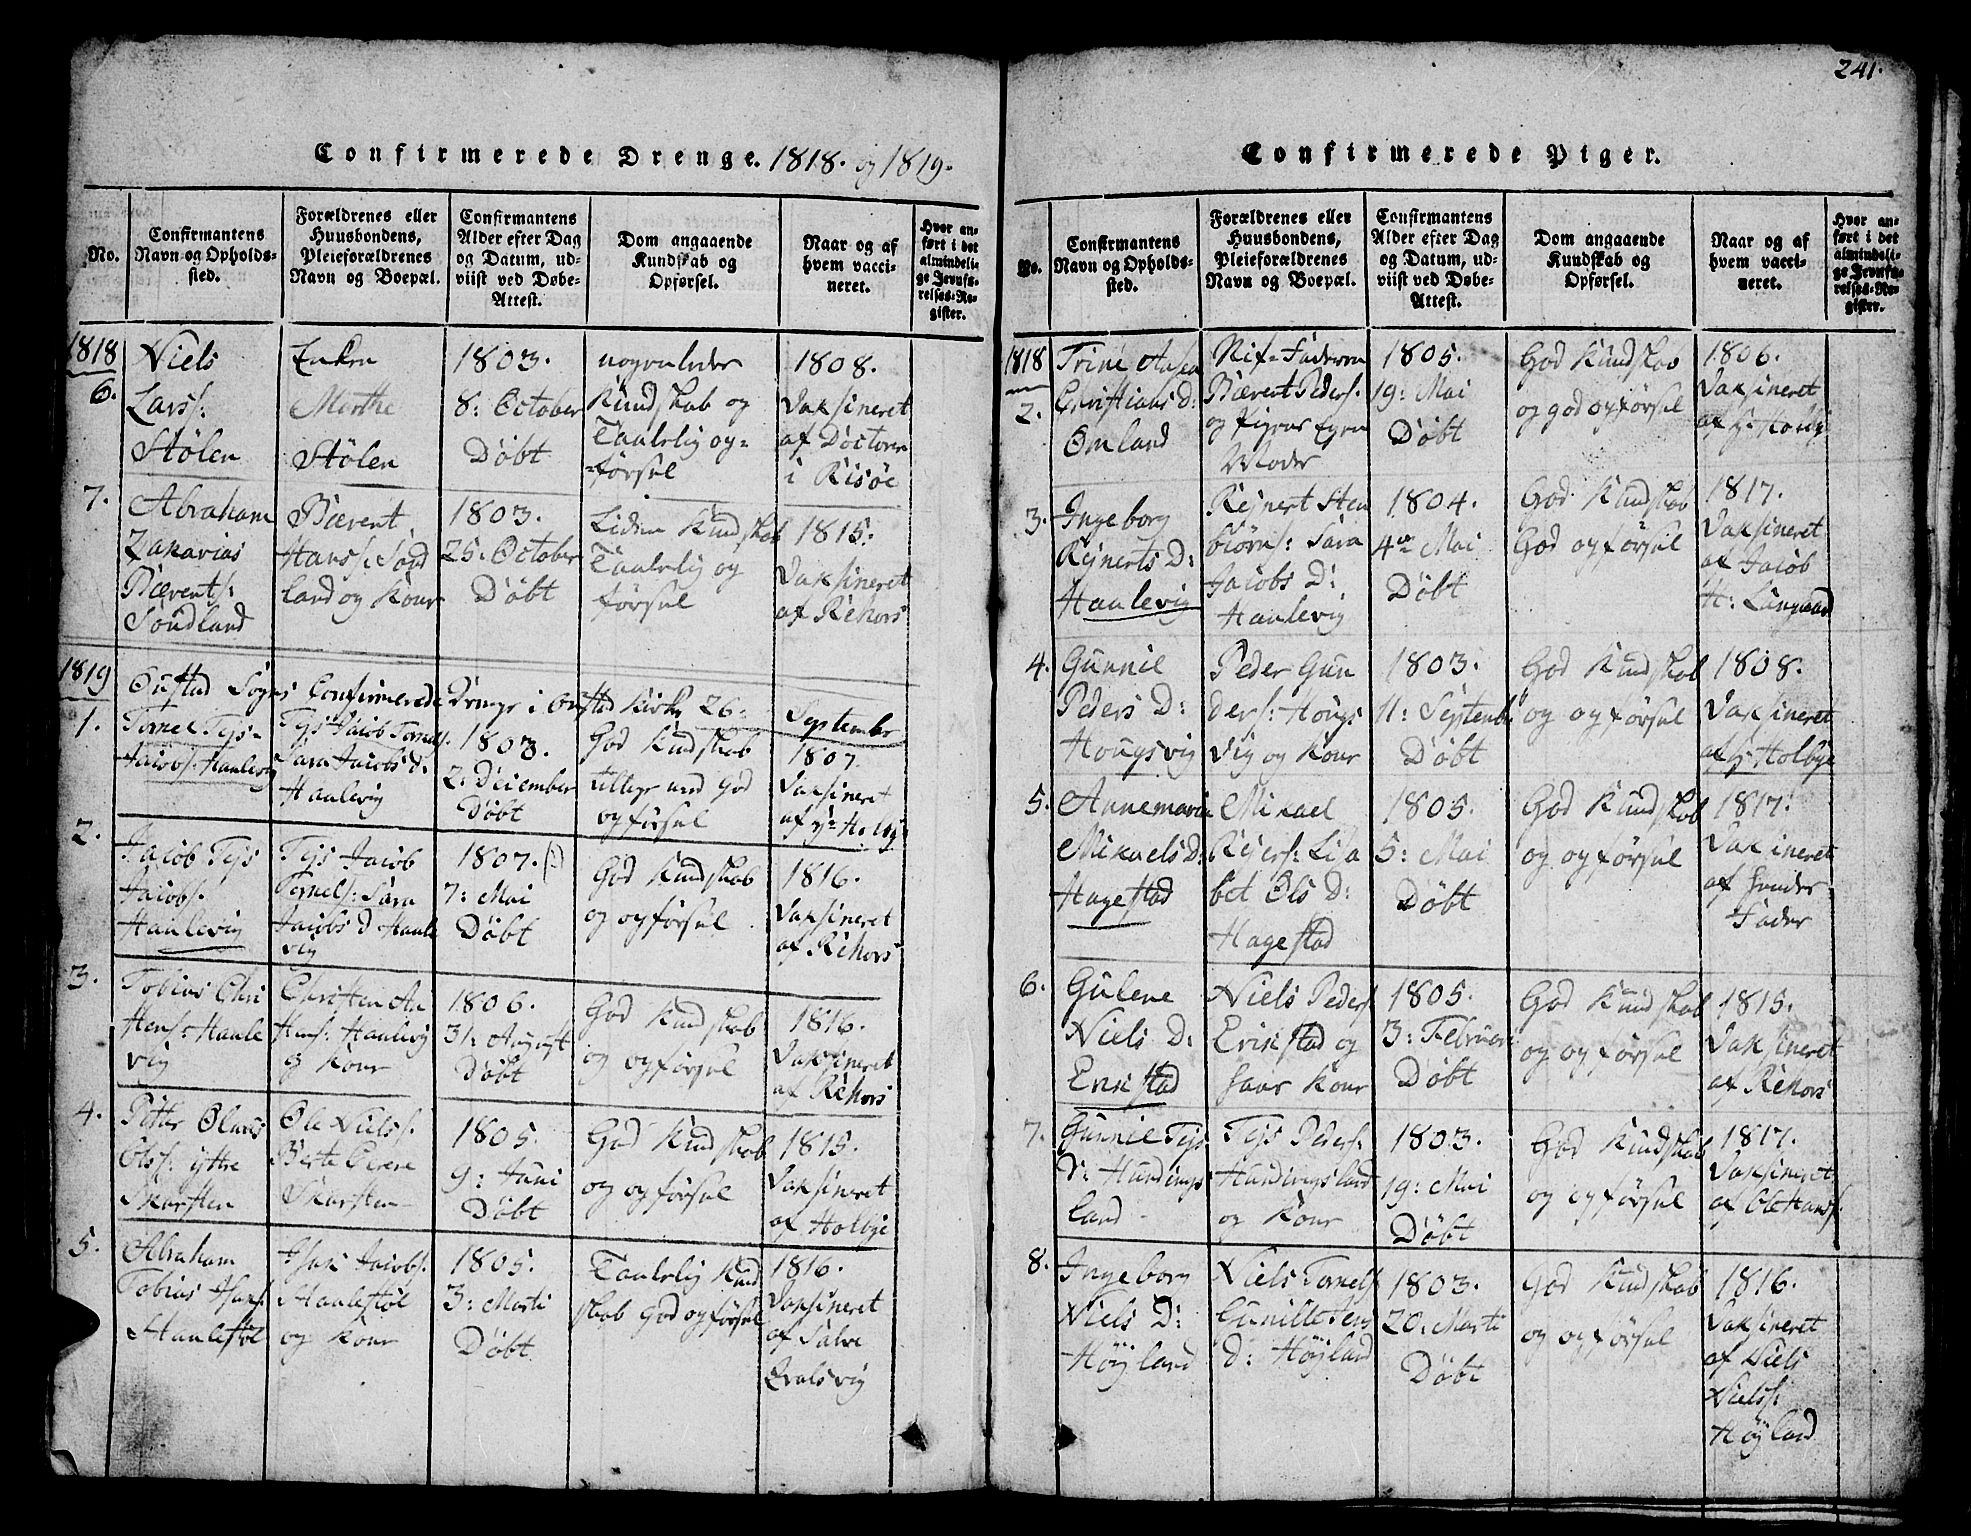 241.
Confirmerede Drenge. 1818. og 1819.
No.
Confirmantens
Navn og Opholds-
sted.
Forældrenes eller
Huusbondens,
Pleieforældrenes
Navn og Boepæl.
Confirmantens
Alder efter Dag
og Datum, ud-
viist ved Døbe-
Attest.
Dom angaaende
Kundskab og
Opførsel.
Naar og af
hvem vacci-
neret.
Hvor an-
ført i det
almindeli-
ge Jevnfø-
relses-Re-
gister.
1818
6.
Niels
Larss:
Stølen
Enken
Merthe
Stølen
1803.
8: October
Døbt
nogenledes
Kundskab og
Taalelig op-
førsel
1808.
Vaksineret
af Doctoren
i Risöe
7.
Abraham
Zakarias
Bærents:
Sondland
Bærent
Hanss: Sond
land og Kone
1803.
25: October
Døbt
Liden Kundskab
Taalelig op
førsel
1815.
Vaksineret
af Rehors
1819
Oustad Sogns Confirmerede Drenge i Oustad Kirke 26=
September
1.
Tornel Tejs-
Jacobs: Haalevig
Tejs Jacob Tornels.
Sara Jacobs D:
Haalevig
1803.
2: December
Døbt
God Kundskab
tillige med god
opførsel
1807.
Vaksineret
af Hr Holby
2.
Jacob Tejs
Jacobs:
Haalevig
Tejs Jacob
Tornels: Sara
Jacobs D Haale
vig
1807.
7: Mai
Døbt
God Kundskab
og opførsel
1816.
Vaksineret
af Rehors
3.
Tobias Chri
stens: Haale
vig
Christen An
stens: Haalevig
og Kone
1806.
31: August
Døbt
God Kundskab
og opførsel
1816.
Vaksineret
af Rehors
4.
Petter Olaus
Olss: ytre
Skarsten
Ole Niels:
Berte
Skarsten
1805.
9: Juni
Døbt
God Kundskab
og opførsel
1815.
Vaksineret
af Holbye
5.
Abraham
Tobias Isaks:
Haalestøl
Isak Jacobs:
Haalestøl
og Kone
1805.
3: Marti
Døbt
Taalelig Kund
skab God opførsel
1816.
Vaksineret
af Salve
Evalsvig
Confirmerede Piger.
No.
Confirmantens
Navn og Opholds-
sted.
Forældrenes eller
Huusbondens,
Pleieforældrenes
Navn og Boepæl.
Confirmantens
Alder efter Dag
og Datum, ud-
viist ved Døbe-
Attest.
Dom angaaende
Kundskab og
Opførsel.
Naar og af
hvem vacci-
neret.
Hvor an-
ført i det
almindeli-
ge Jevnfø-
relses-Re-
gister.
1818
2.
Trine Aasea
Christians D:
Omland
Stif-Faderen
Bærent Peders:
og Pigens Egen
Moder
1805.
19: Mai
Døbt
God Kundskab
og god opførsel
1806.
Vaksineret
af Hr Holby
3.
Ingeborg
Rejnerts D:
Haalevig
Rejnert Sten
biörns: Sara
Jacobs D:
Haalevig
1804.
4de Mai
Døbt
God Kundskab
God opførsel
1817.
Vaksineret
af Jacob
H: Langaard
4.
Gunnil
Peders D:
Hougsvig
Peder Gun
ders: Hougs
vig og Kone
1803.
11: Septembr
Døbt
God Kundskab
og opførsel
1808.
Vaksineret
af Hr Holbye
5.
Annemaria
Mikaels D:
Hagestad
Mikael
Rejers: Lisa
bet Ols D:
Hagestad
1805.
5: Mai
Døbt
God Kundskab
og opførsel
1817.
Vaksineret
af hendes
Fader
6.
Gulene
Niels D:
Erikstad
Niels Peders:
Erikstad og
hans Kone
1805.
3: Februar
Døbt
God Kundskab
og opførsel
1815.
Vaksineret
af Rehors
7.
Gunnil Tejs
D: Hundings
land
Tejs Peders:
Hundingsland
og Kone
1803.
19: Mai
Døbt
God Kundskab
og opførsel
1817.
Vaksineret
af Ole Hans:
8.
Ingeborg
Niels D:
Höyland
Niels Tornels:
Gunille Jens
D: Höyland
1803.
20: Marti
Døbt
God Kundskab
og opførsel
1816.
Vaksineret
af Niels
Nielss:
Höyland